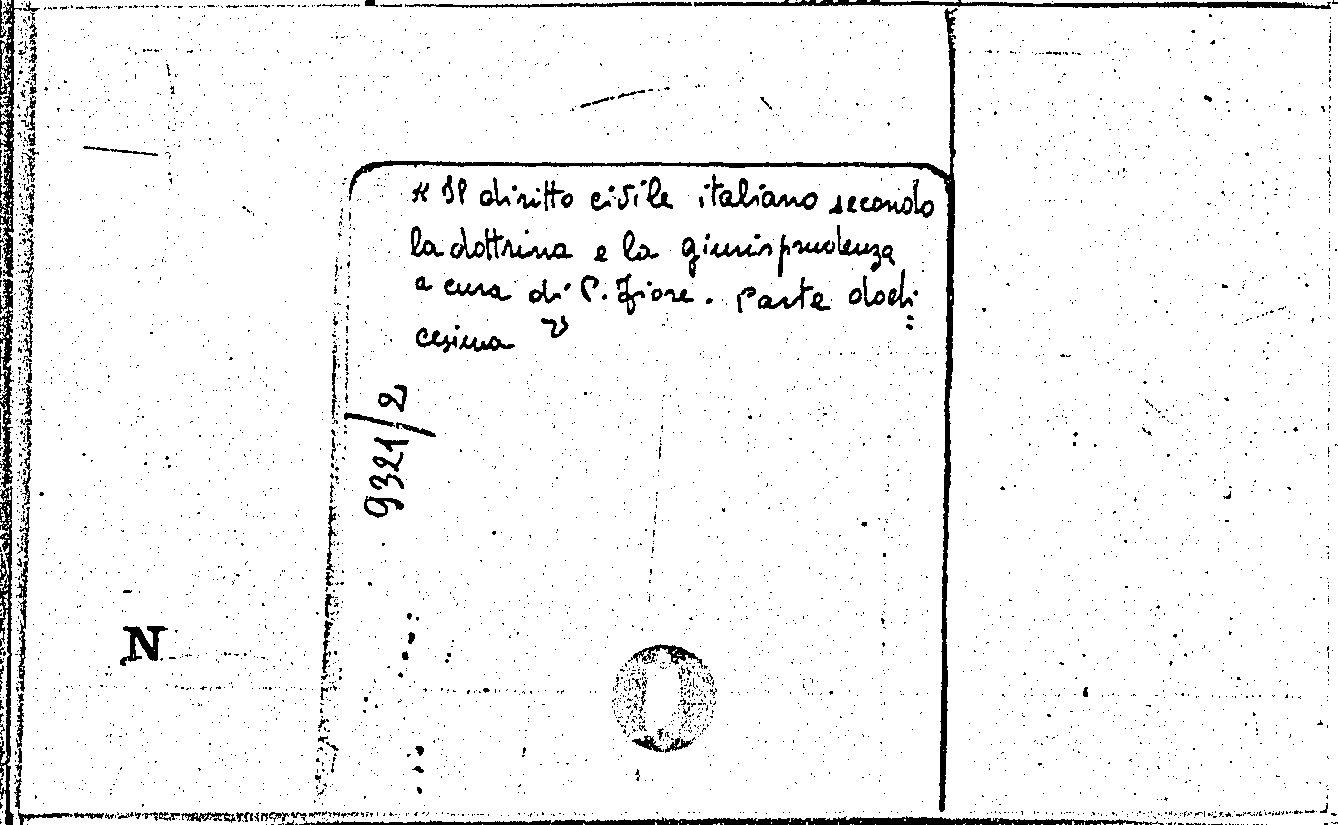 « Il diritto civile italiano secondo
la dottrina e la giurisprudenza
a cura di P. Fiore. Parte dodi
cesima »
9321/2
N